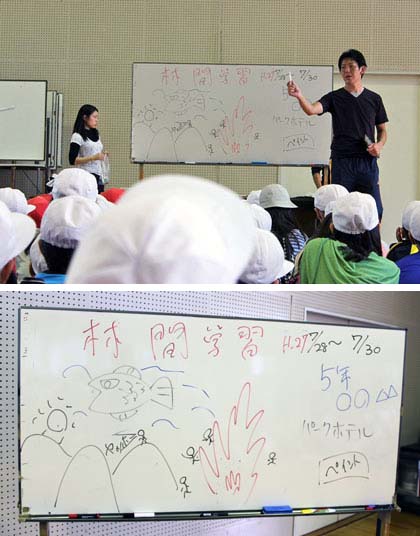 林間学習 H.27 7/28〜7/30
パークホテル
ペイント
林間学習 H.27 7/28〜7/30
5年
○○△△
ヤッホー
パークホテル
ペイント